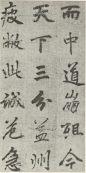 而中道崩殂今
天下三分益州
疲敝此誠危急